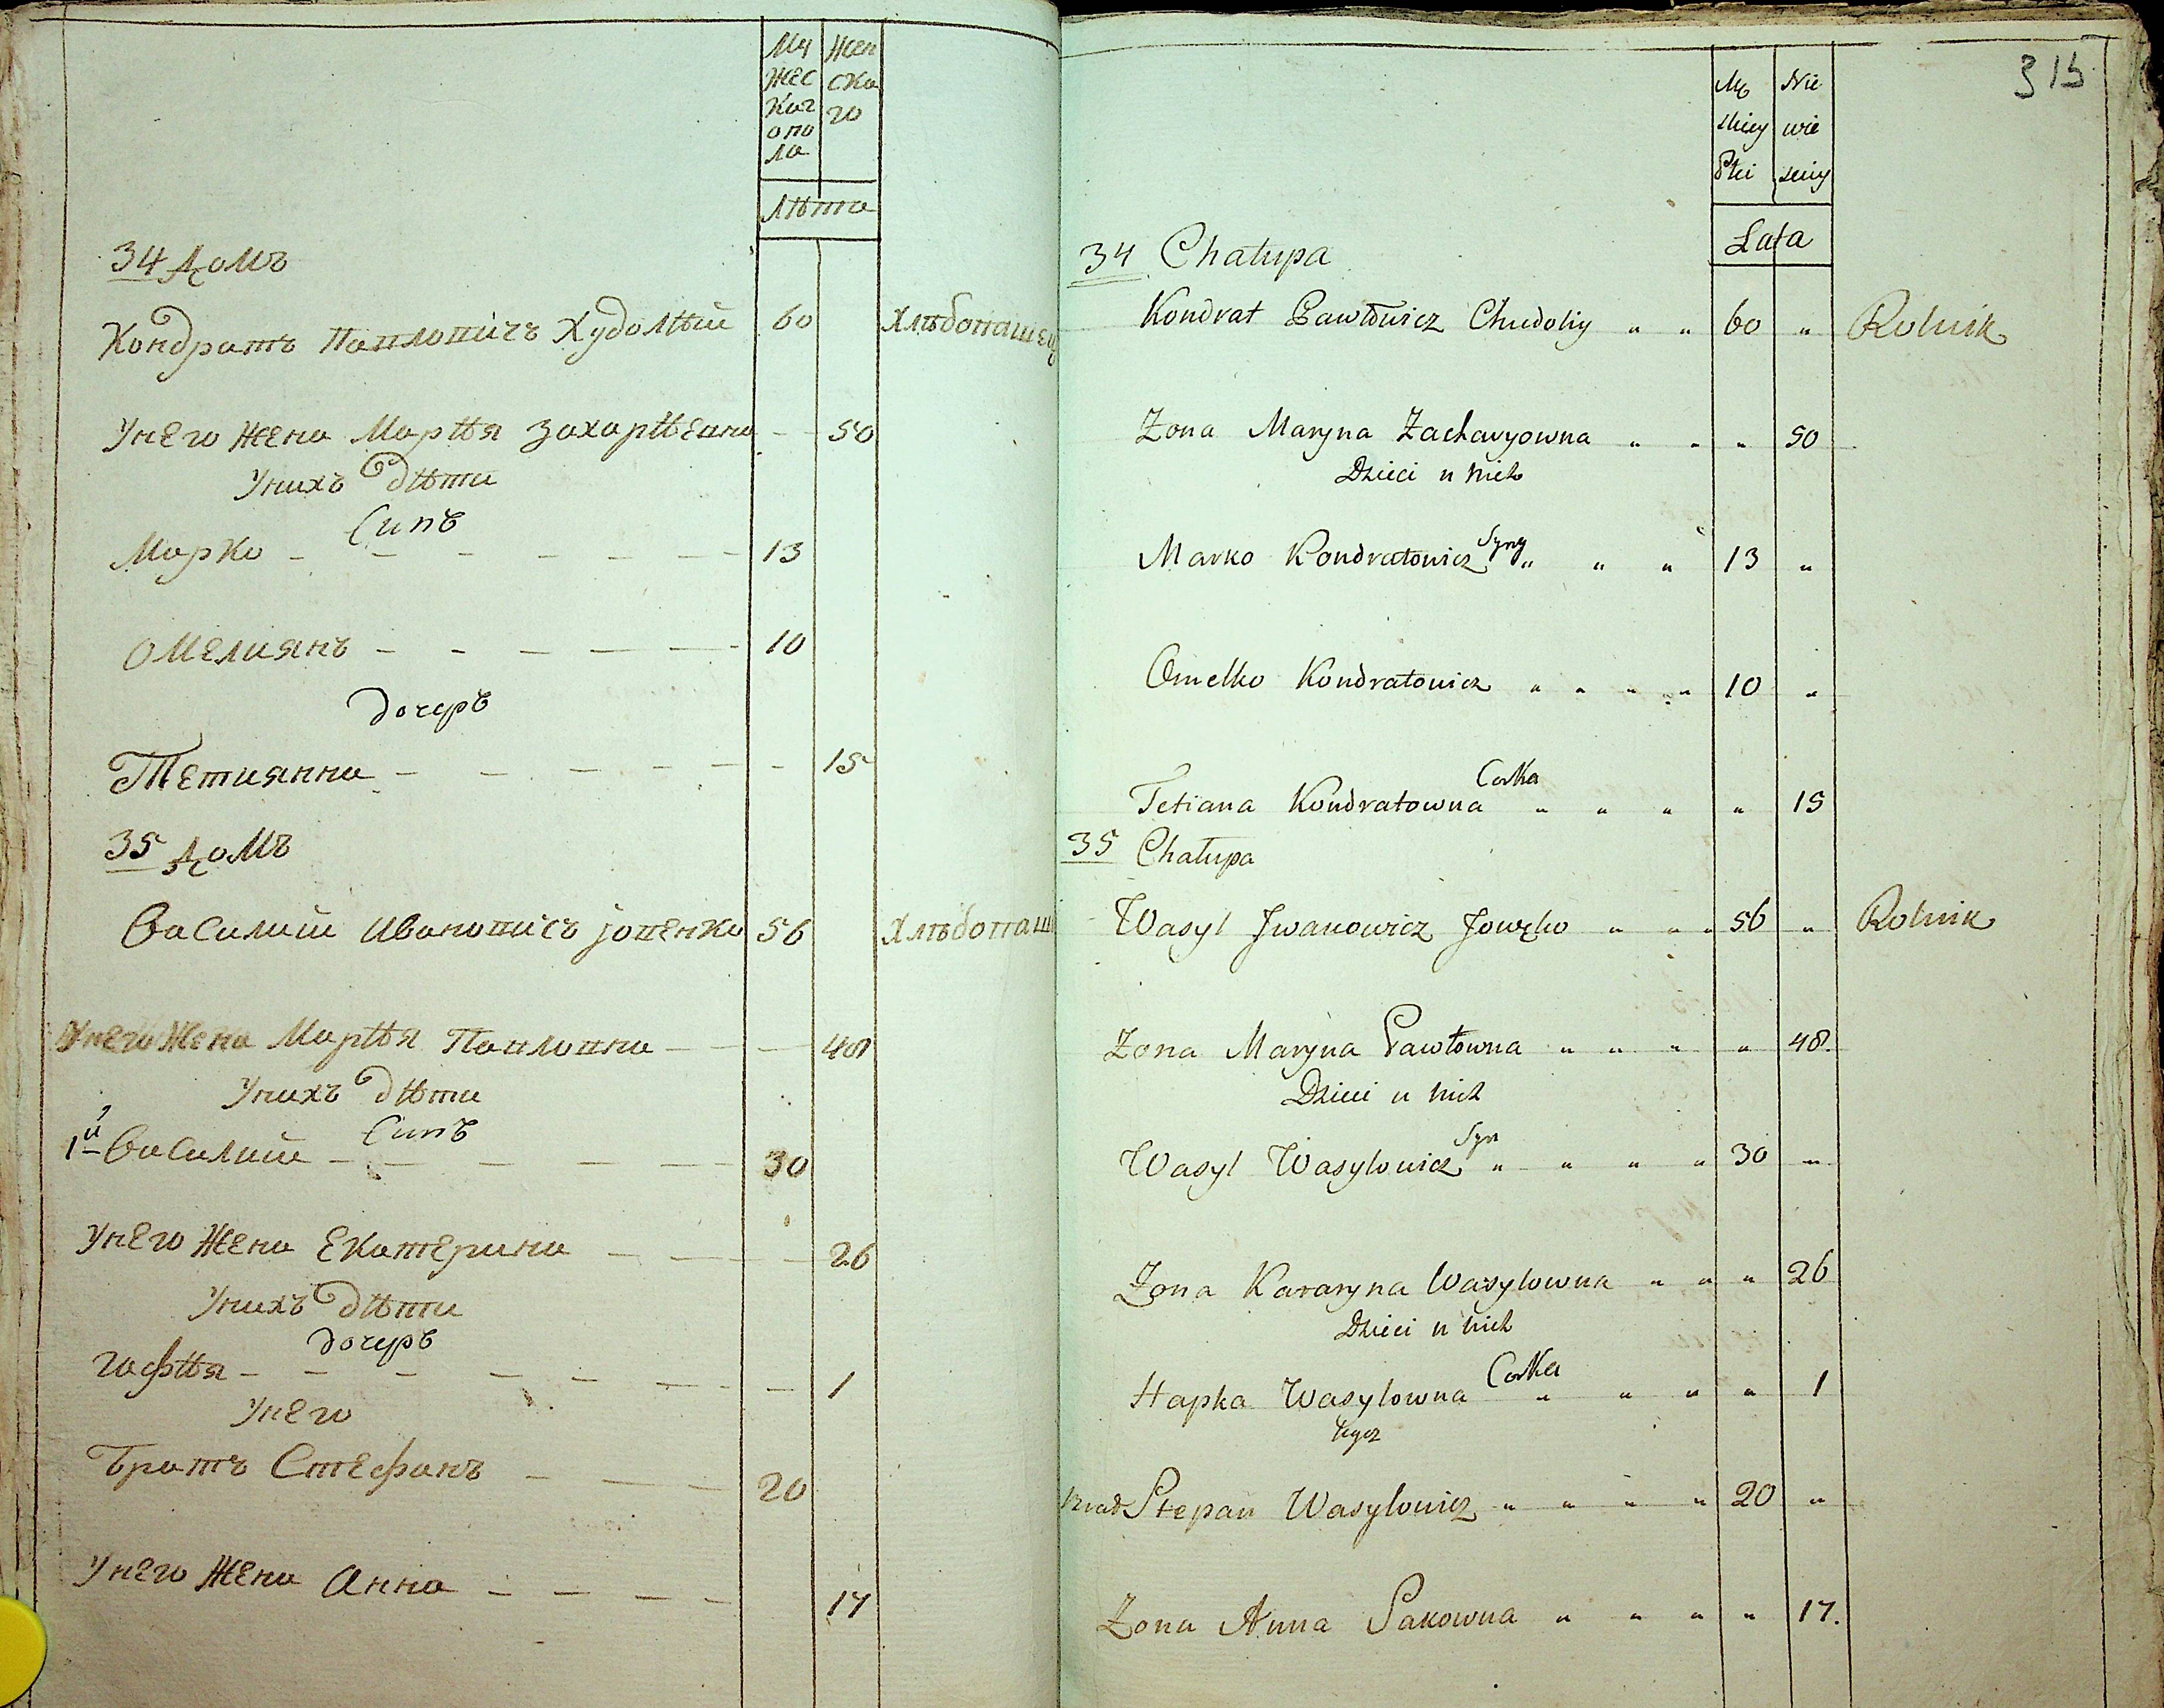 Му Жен
жес ска
каг го
о по
ла
Лѣта
34 домъ
Кондратъ Павловичъ Худолѣй 60 Хлѣбопашец
У него жена Марѣя Захарѣевна - - 50
У нихъ дѣти
Синъ
Марко - - - - - - - 13
Омелиянъ - - - - - - 10
дочеръ
Тетиянна - - - - - - 15
35 домъ
Василий Ивановичъ Jовенко 56 Хлѣбопаш
У него жена Марѣя Павловна - - - 48
У нихъ дѣти
Синъ
1й Василий - - - - - - 30
У него жена Екатерина - - - - 26
У нихъ дѣти
дочеръ
Гафѣя - - - - - - - - 1
У него
братъ Стефанъ - - - - 20
У него жена Анна - - - - 17
315
Mę Nie
skiey wie
Płci sciey
Lata
34 Chałupa
Kondrat Pawłowicz Chudoliy " " 60 " Rolnik
Zona Maryna Zacharyowna " " " 50
Dzieci u nich
Syny
Marko Kondratowicz " " " 13 "
Omelko Kondratowicz " " " " 10 "
Corka
Tetiana Kondratowna " " " " 15
35 Chałupa
Wasyl Jwanowicz Jowęko " " " 56 " Rolnik
Zona Maryna Pawłowna " " " " 48.
Dzieci u nich
Syn
Wasyl Wasylowicz " " " " 30 "
Zona Kataryna Wasylowna " " " 26
Dzieci u nich
Corka
Hapka Wasylowna " " " " 1
tegoz
Stepan Wasylowicz " " " " 20 "
Zona Anna Sakowna " " " " 17.